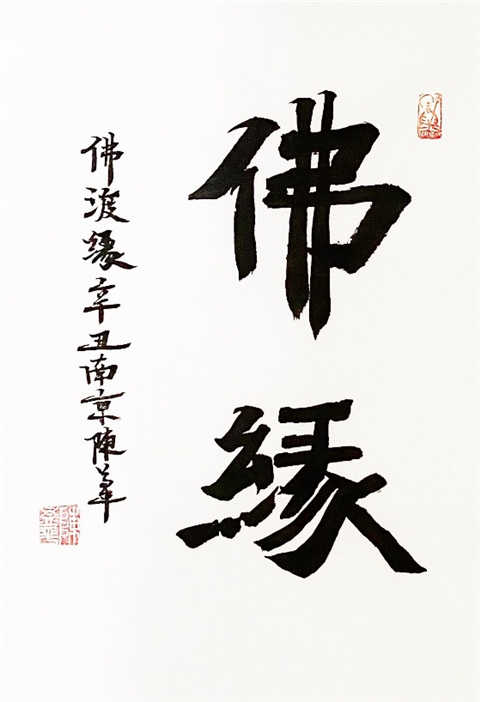 佛緣
佛渡緣辛丑南京陳華